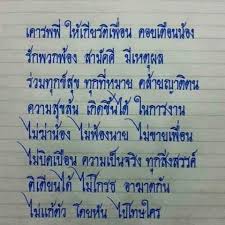 เคารพพี่ ให้เกียรติเพื่อน คอยเตือนน้อง
รักพวกพ้อง สามัคคี มีเหตุผล
ร่วมทุกข์สุข ทุกที่หมาย คล้ายญาติตน
ความสุขล้น เกิดขึ้นได้ ในการงาน
ไม่ฆ่าน้อง ไม่ฟ้องนาย ไม่ขายเพื่อน
ไม่บิดเบือน ความเป็นจริง ทุกสิ่งสรรค์
ติเตียนได้ ไม่โกรธ อาฆาตกัน
ไม่แก้ตัว โดยหัน ไปโทษใคร